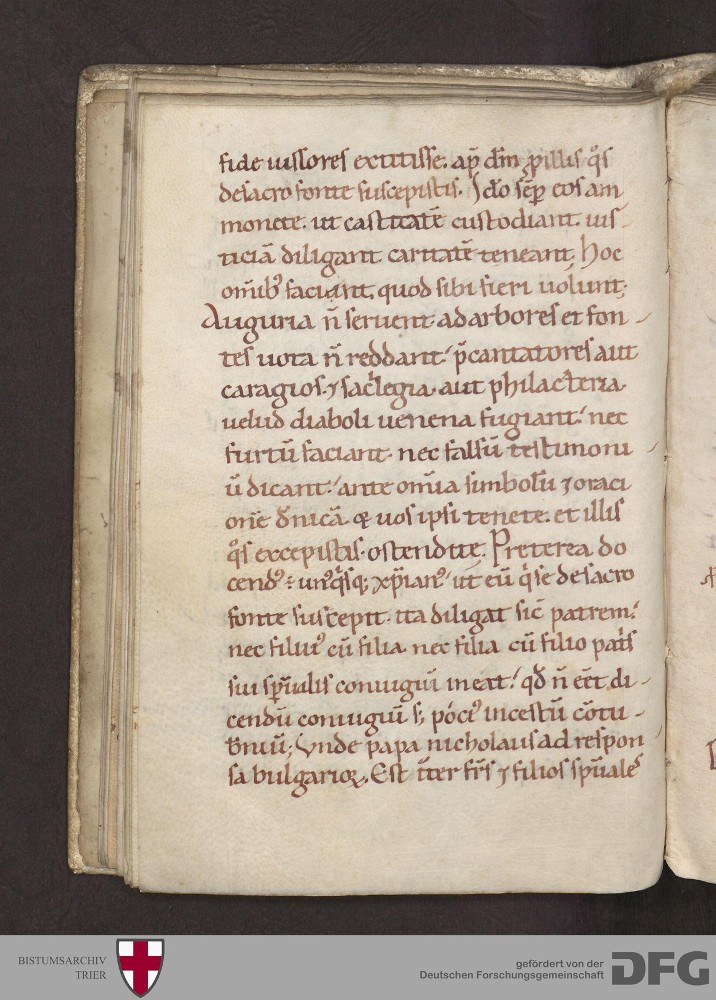 fide iussores extitisse. ap̄ dm̄ ꝓillis qͦs
desacro fonte suscepistis. Ideo sēp eos am
monete. ut castitatē custodiant. ius-
ticiā diligant. caritatē teneant. Hoc
om̄ibꝰ faciant, quod sibi fieri uolunt;
Auguria n̄ seruent. adarbores et fon-
tes uota n̄ reddant. p̄cantatores aut
caragios. ⁊ sac̓legia. aut philacteria.
uelud diaboli uenena fugiant. nec
furtū faciant. nec falsū testimoni-
ū dicant. ante om̄ia simbolū ⁊ oraci
onē dn̄icā. ⁊ uos ipsi tenete. et illis
qͦs excepistis. ostendite. Preterea do
cendꝰ ÷ unꝰqͥsqꝫ xp̄ianꝰ. ut eū qͥ se desacro
fonte suscepit. ita diligat sic̄ patrem.
nec filiuꝰ cū filia. nec filia cū filio pat̄s
sui sp̄ualis coniugiū ineat. qd̄ n̄ eēt di-
cendū coniugiū s; pocꝰ incestū cōtu-
b̄niū; Vnde papa nicholaus ad respon
sa bulgarioꝝ, Est int̄er fr̄s ⁊ filios sp̄uales
BISTUMSARCHIV
TRIER
gefördert von der
Deutschen Forschungsgemeinschaft
DFG